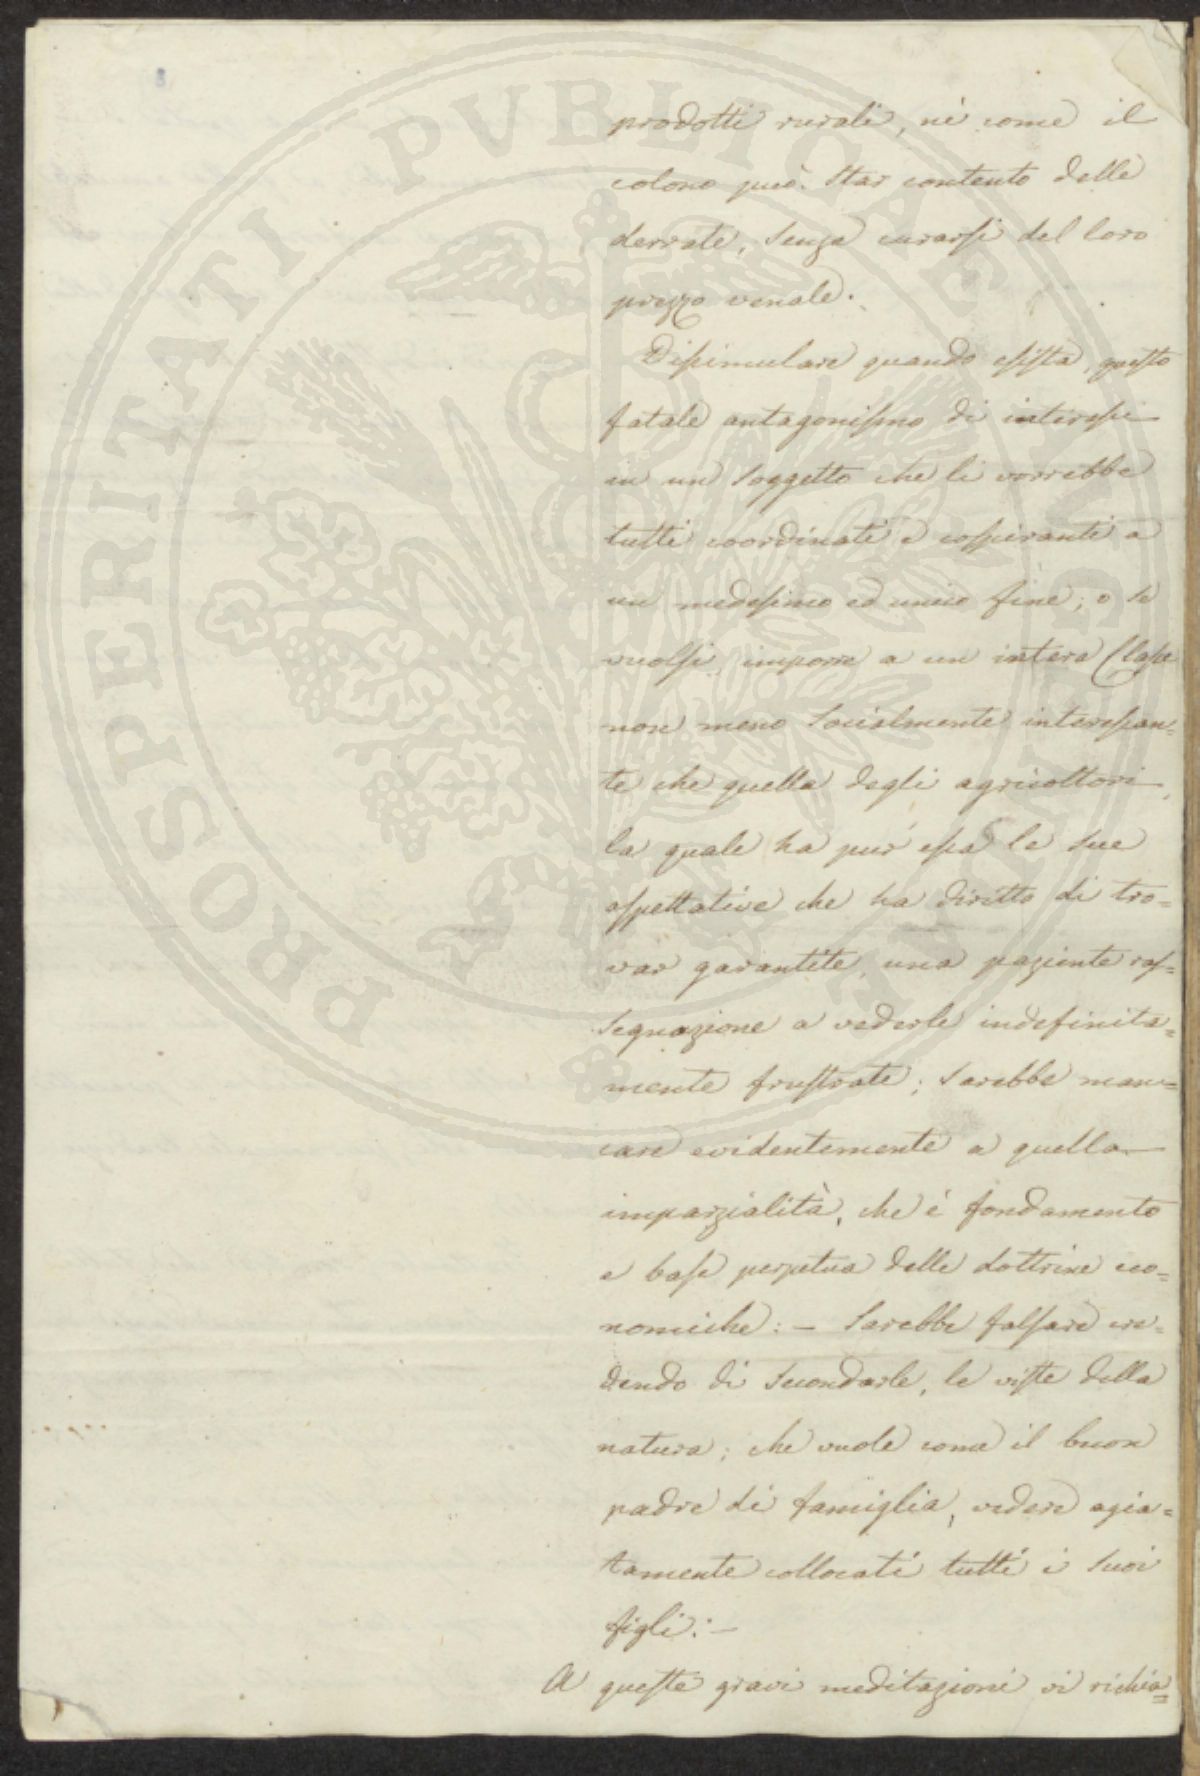 prodotti rurali, nè come il
colono può star contento delle
derrate, senza curarsi del loro
prezzo venale.
Dissimulare quando esista, questo
fatale antagonismo di interessi
in un soggetto che li vorrebbe
tutti coordinati e cospiranti a
un medesimo ed unico fine; o se
vuolsi, imporre a un intera Classe
non meno socialmente interessan=
te che quella degli agricoltori,
la quale ha pur essa le sue
aspettative che ha diritto di tro=
var garantite, una paziente ras=
segnazione a vederle indefinita=
mente frustrate; sarebbe man=
care evidentemente a quella
imparzialità, che è fondamento
e base perpetua delle dottrine eco=
nomiche: – Sarebbe falsare cre=
dendo di secondarle, le viste della
natura; che vuole come il buon
padre di famiglia, vedere agia=
tamente collocati tutti i suoi
figli: –
A queste gravi meditazioni vi richia=
PROSPERITATI PVBLICAE